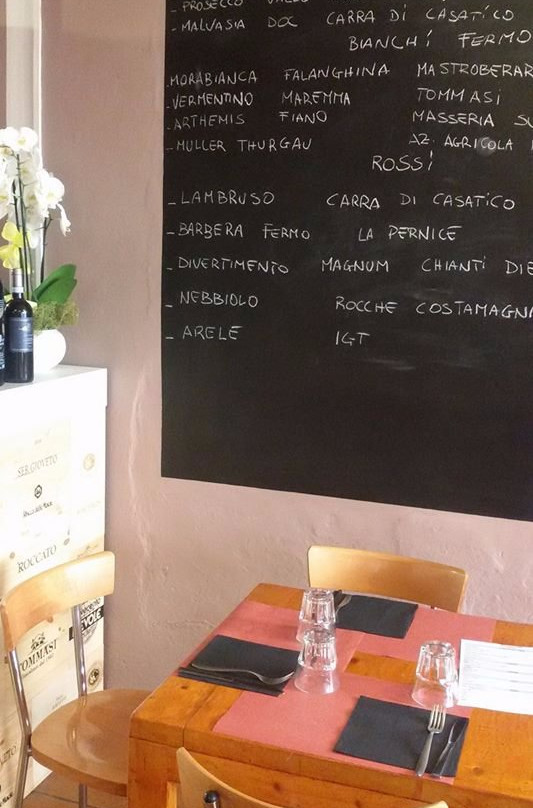 - PROSECCO
- MALVASIA DOC CARRA DI CASATICO
BIANCHI FERMO
- MORABIANCA FALANGHINA MASTROBERAR
- VERMENTINO MAREMMA TOMMASI
- ARTHEMIS FIANO MASSERIA SU
- MULLER THURGAU AZ. AGRICOLA
ROSSI
- LAMBRUSO CARRA DI CASATICO
- BARBERA FERMO LA PERNICE
- DIVERTIMENTO MAGNUM CHIANTI DIE
- NEBBIOLO ROCCHE COSTAMAGNA
- ARELE IGT
SER GIOVETO
ROCCATO
TOMMASI